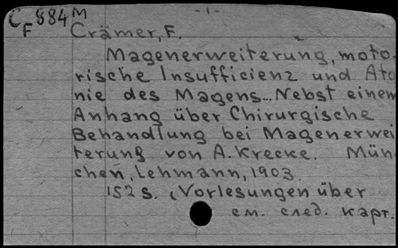 C 884 M -1-
F Crämer, F.
Magenerweiterung, moto-
rische Insufficienz und Ato
nie des Magens... Nebst einem
Anhang über Chirurgische
Behandlung bei Magenerwei
terung von A. Krecke. Mün
chen, Lehmann, 1903.
152 s. (Vorlesungen über
см. след. карт.